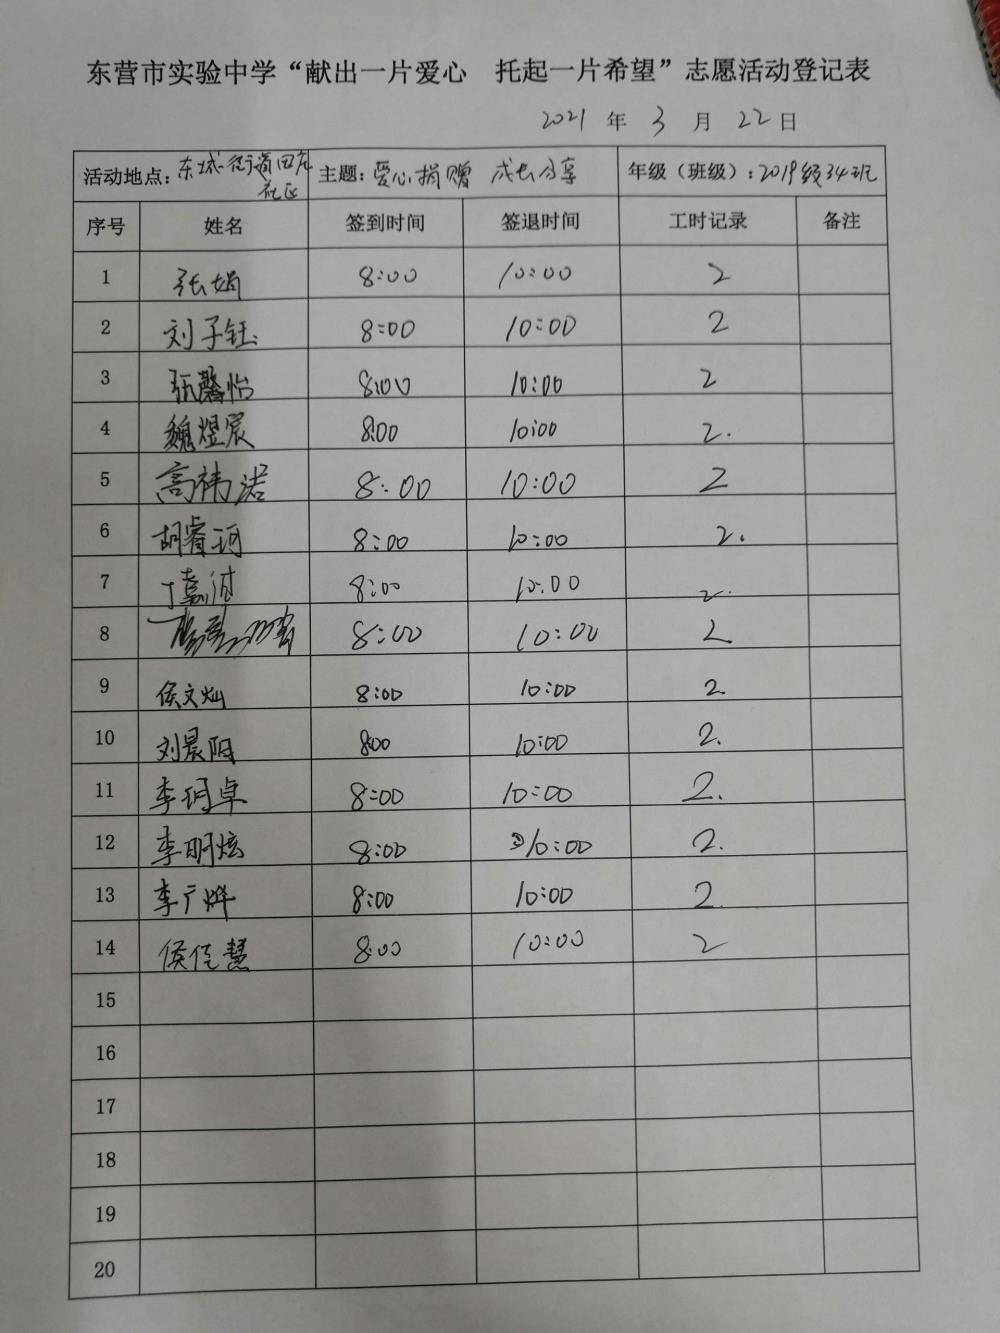 东营市实验中学“献出一片爱心 托起一片希望”志愿活动登记表
2021 年 3 月 22 日
活动地点：东城街道田庄社区 主题：爱心捐赠 成长分享 年级（班级）：2019级34班
序号 姓名 签到时间 签退时间 工时记录 备注
1 张娟 8:00 10:00 2
2 刘子钰 8:00 10:00 2
3 张馨怡 8:00 10:00 2
4 魏煜宸 8:00 10:00 2.
5 高祎诺 8:00 10:00 2
6 胡睿珂 8:00 10:00 2.
7 8:00 10:00 2.
8 8:00 10:00 2
9 侯文灿 8:00 10:00 2.
10 刘晨阳 8:00 10:00 2.
11 李珂卓 8:00 10:00 2.
12 李明炫 8:00 10:00 2.
13 李广烨 8:00 10:00 2.
14 侯佳慧 8:00 10:00 2
15
16
17
18
19
20